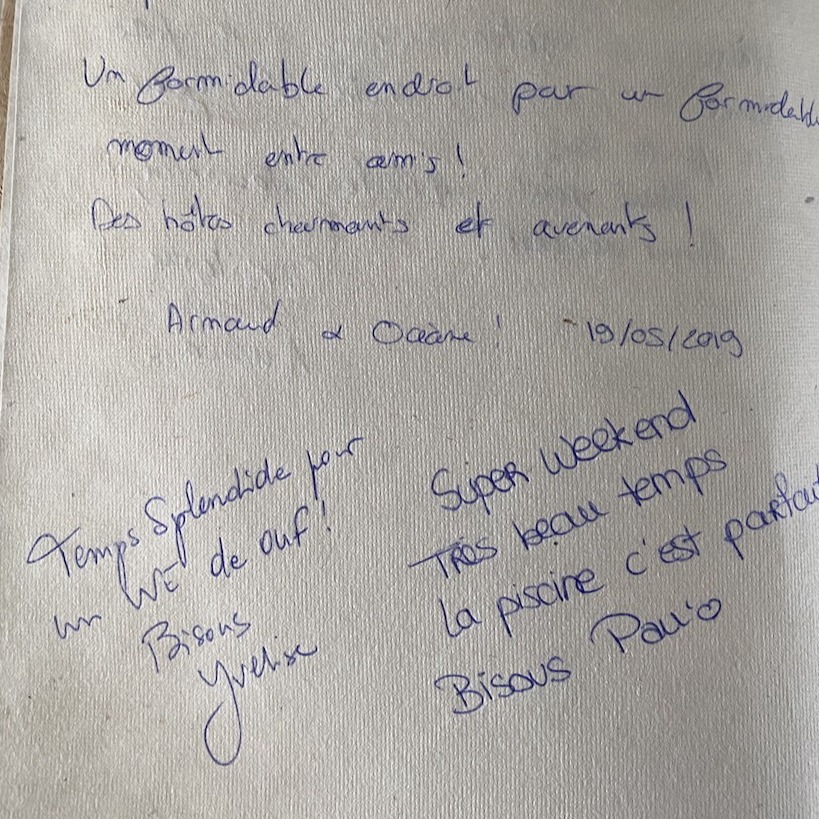 Un formidable endroit par un formidable
moment entre amis !
Des hôtes charmants et avenants !
Armand & Océane ! 19/05/2019
Temps Splendide pour
un WE de ouf !
Bisous
Yvelise
Super Weekend
Très beau temps
La piscine c'est parfait
Bisous